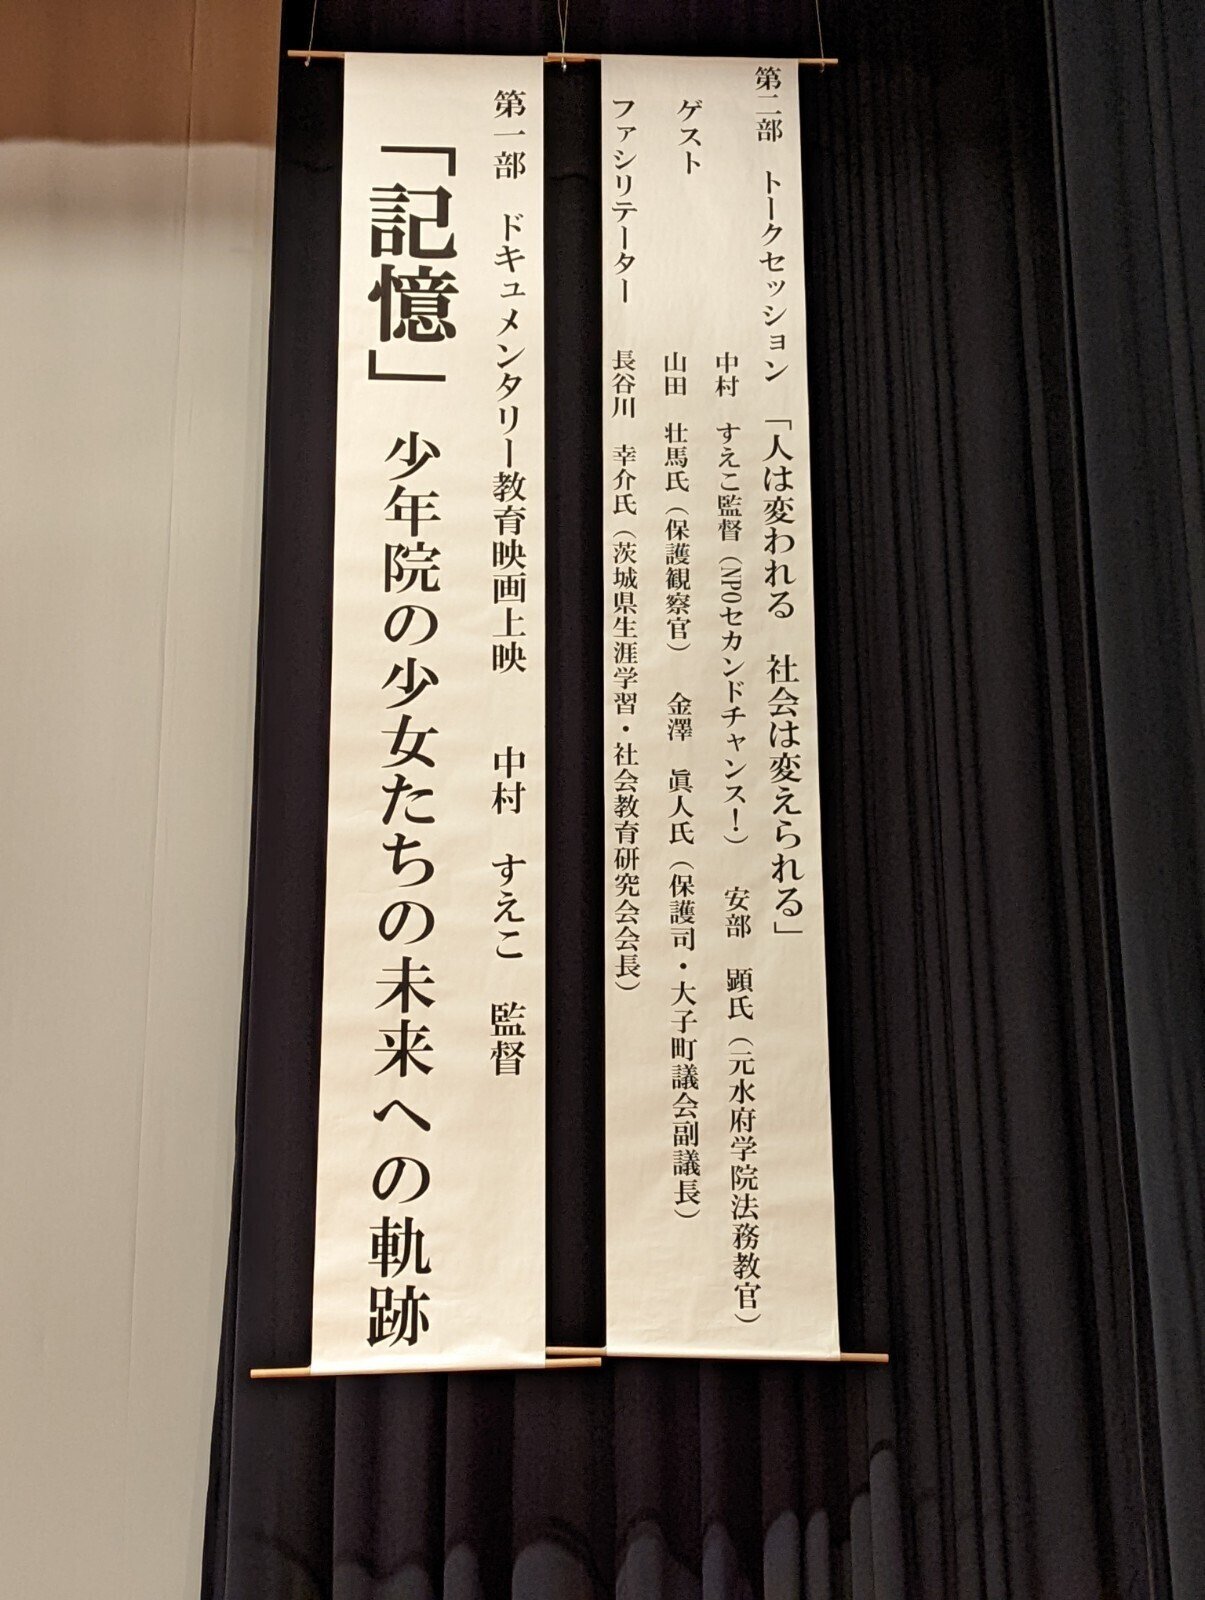 第一部　ドキュメンタリー教育映画上映　中村　すえこ　監督
「記憶」少年院の少女たちの未来への軌跡
第二部　トークセッション「人は変われる　社会は変えられる」
ゲスト　中村　すえこ監督（NPOセカンドチャンス！）　安部　顕氏（元水府学院法務教官）
山田　壮馬氏（保護観察官）　金澤　眞人氏（保護司・大子町議会副議長）
ファシリテーター　長谷川　幸介氏（茨城県生涯学習・社会教育研究会会長）